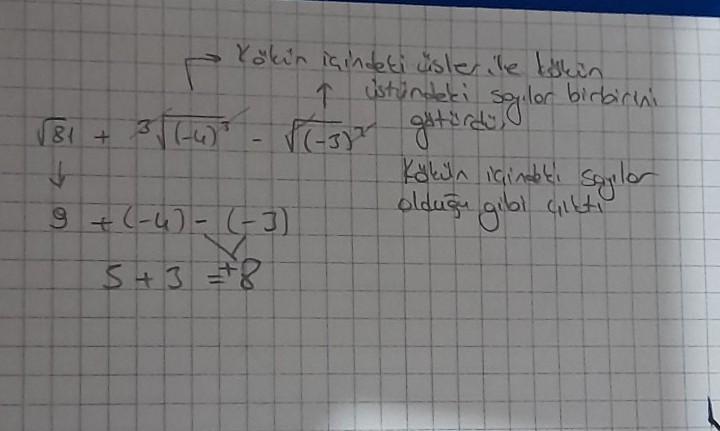 Kökün içindeki üsler ile kökün
üstündeki sayılar birbirini
götürdü,
√81 + ³√(-4)³ - √(-3)²
Kökün içindeki sayılar
olduğu gibi çıktı
9 + (-4) - (-3)
5 + 3 = +8